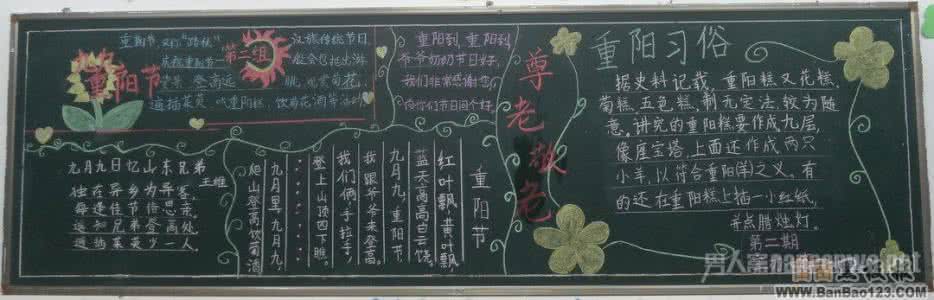 重阳节，又叫"踏秋"
汉族传统节日
第二组
重阳节
庆祝重阳节一般会包括出游
赏景、登高远眺、观赏菊花、
遍插茱萸、吃重阳糕、饮菊花酒等活动
重阳到，重阳到，
爷爷奶奶节日好，
我们非常感谢您，
向你们节日问个好。
九月九日忆山东兄弟
王维
独在异乡为异客，
每逢佳节倍思亲。
遥知兄弟登高处
遍插茱萸少一人。
重阳节
红叶飘，黄叶飘，
蓝天高高白云饶。
九月九，重阳节
我跟爷爷来登高。
我们俩，手拉手，
登上山顶四下瞧。
九月里，九月九，
爬山登高饮菊酒
尊老敬老
重阳习俗
据史料记载，重阳糕又花糕、
菊糕、五色糕，制无定法，较为随
意。讲究的重阳糕要作成九层，
像座宝塔，上面还作成两只
小羊，以符合重阳(羊)之义。有
的还在重阳糕上插一小红纸，
并点腊烛灯。
第二期
男人窝nanrenwo.net
www.BanBao123.com